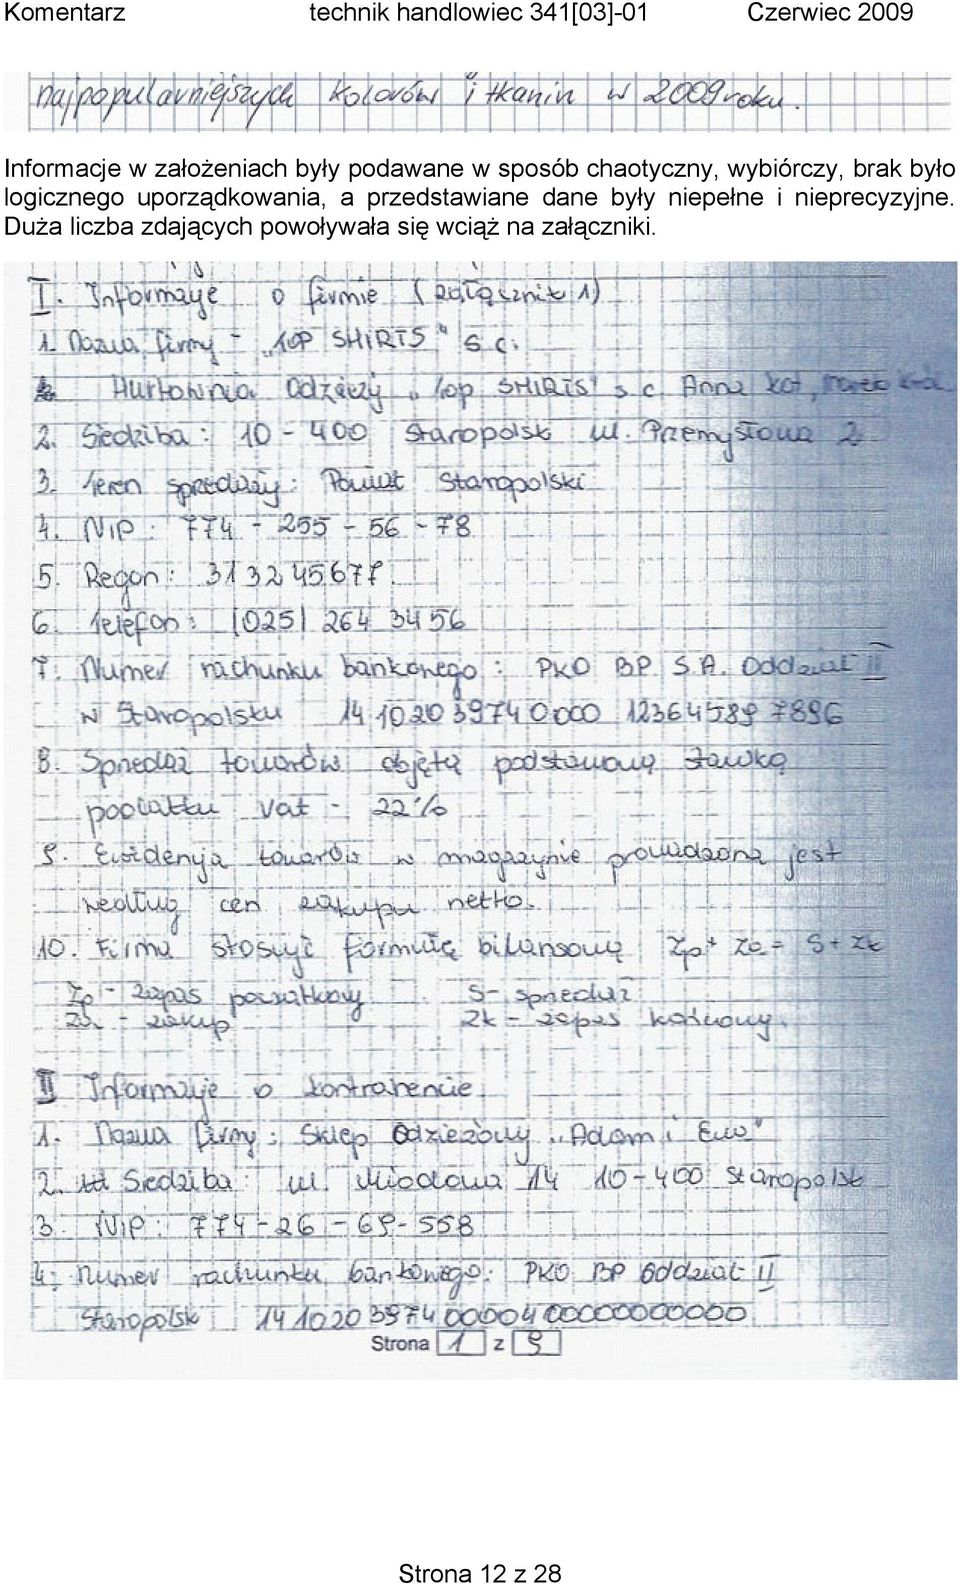 Komentarz technik handlowiec 341[03]-01 Czerwiec 2009
najpopularniejszych kolorów i tkanin w 2009 roku.
Informacje w założeniach były podawane w sposób chaotyczny, wybiórczy, brak było
logicznego uporządkowania, a przedstawiane dane były niepełne i nieprecyzyjne.
Duża liczba zdających powoływała się wciąż na załączniki.
I. Informacje o firmie (załącznik 1)
1. Nazwa firmy - „TOP SHIRTS" s.c.
Hurtownia Odzieży „Top SHIRTS" s.c. Anna Kot,
2. Siedziba: 10-400 Staropolsk ul. Przemysłowa 2
3. Teren sprzedaży: Powiat Staropolski
4. NIP: 774-255-56-78
5. Regon: 313245677.
6. Telefon: (025) 264 34 56
7. Numer rachunku bankowego: PKO BP S.A. Oddział II
w Staropolsku 14 1020 3974 0000 1236 4589 7896
8. Sprzedaż towarów objętą podstawową stawką
podatku Vat - 22%
9. Ewidencja towarów w magazynie prowadzona jest
według cen zakupu netto.
10. Firma stosuję formułę bilansową Zp + Za = S + Zk
Zp - zapas początkowy S - sprzedaż
Za - zakup Zk - zapas końcowy.
II Informacje o kontrahencie
1. Nazwa firmy: Sklep Odzieżowy „Adam i Ewa"
2. Siedziba: ul. Miodowa 14 10-400 Staropolsk
3. NIP: 774-26-69-558
4. Numer rachunku bankowego: PKO BP Oddział II
Staropolsk 14 1020 3974
Strona 1 z 9
Strona 12 z 28